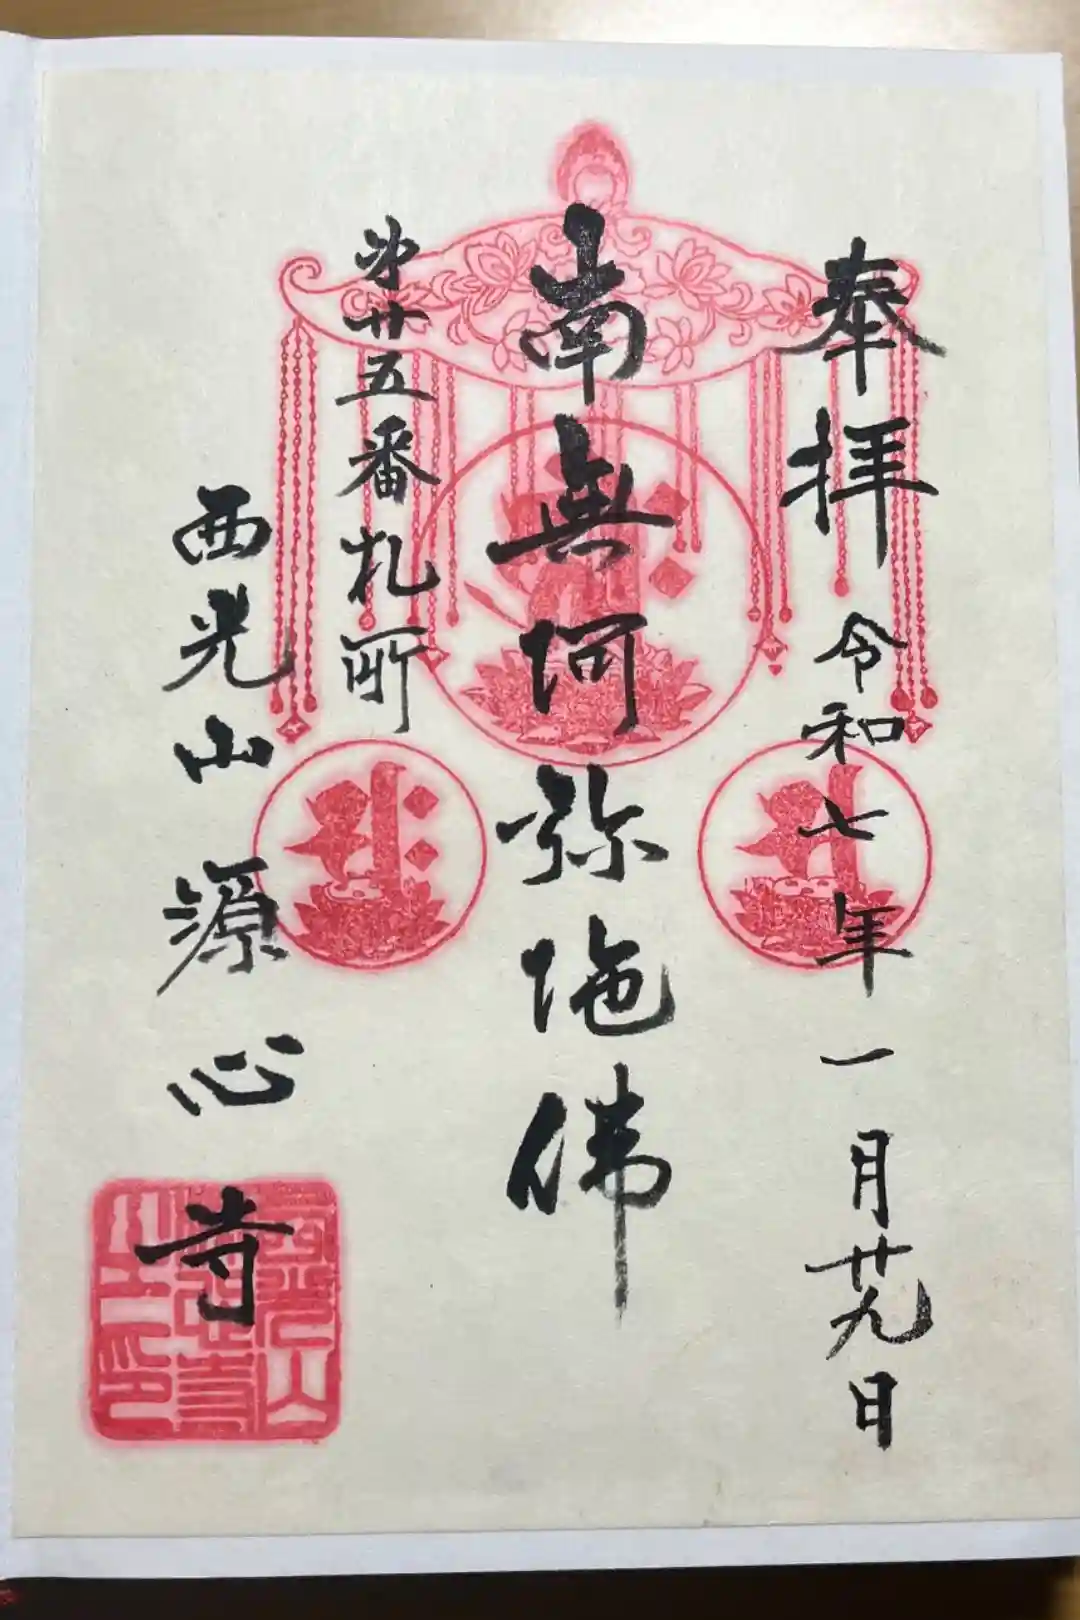 奉拝 令和七年一月廿九日
南無阿弥陁佛
第廿五番札所
西光山 源心寺